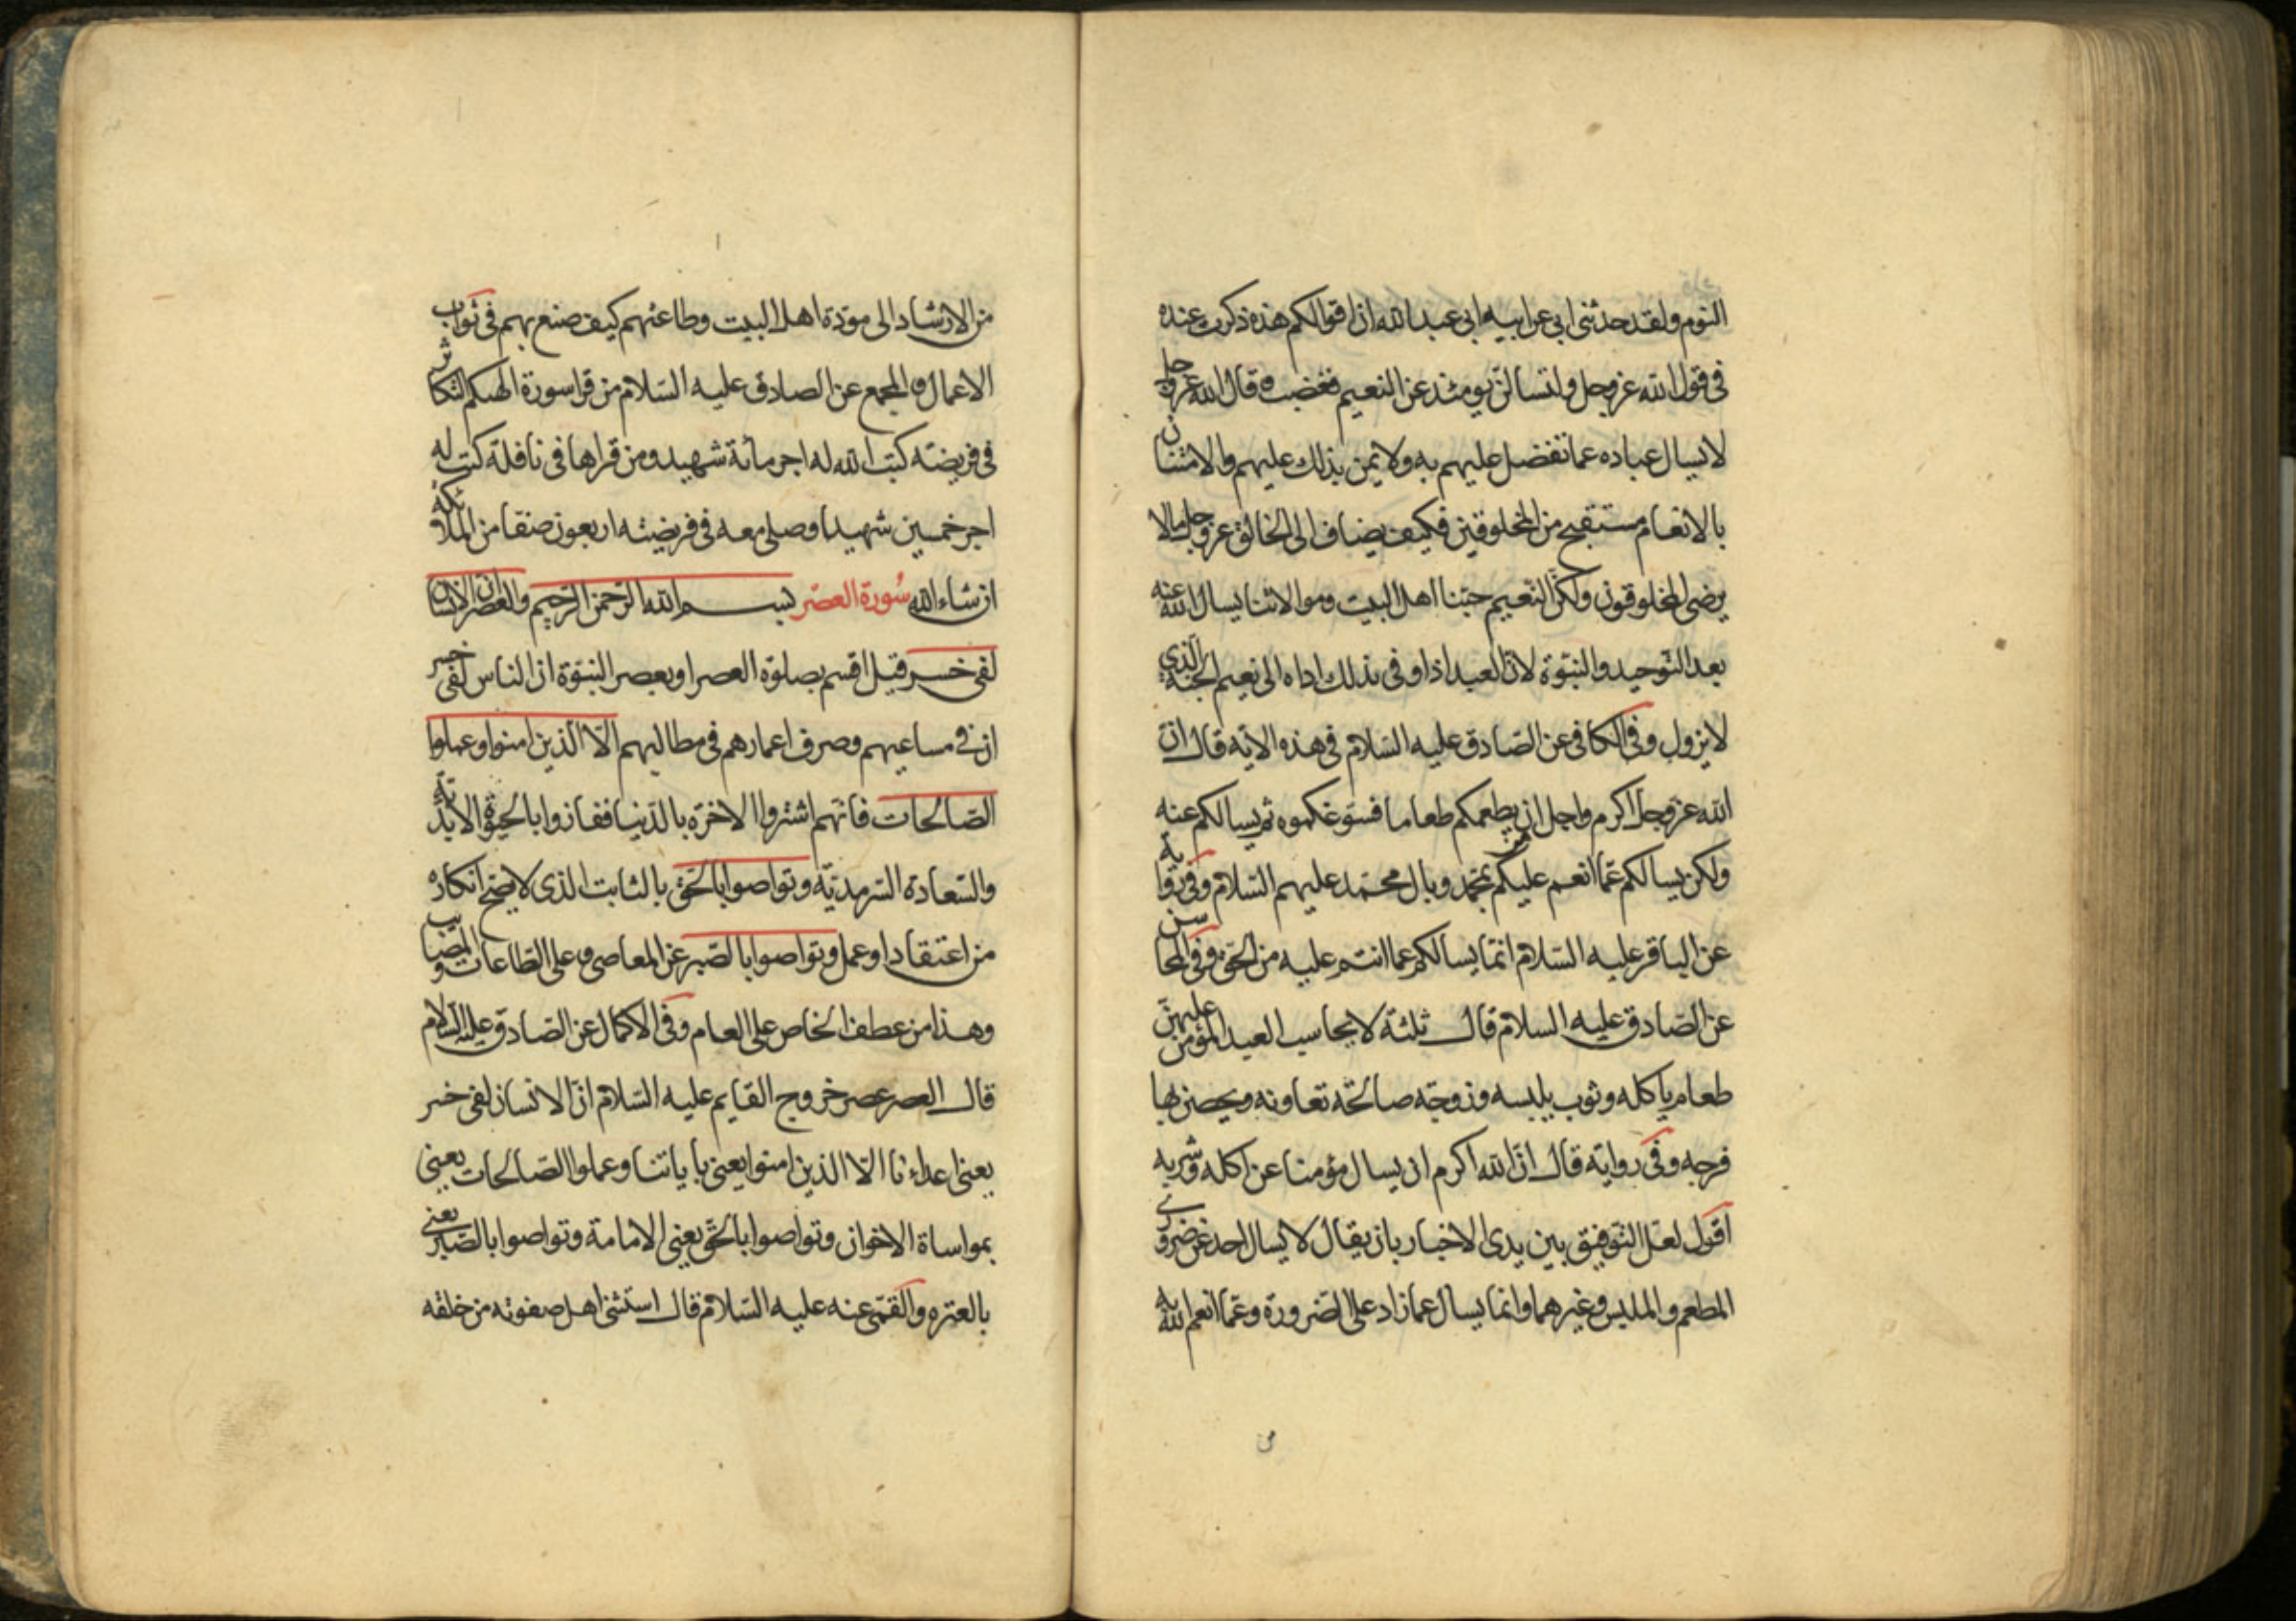 النوم ولقد حدثني ابي عن ابيه ابي عبد الله ان اقوالكم هذه ذكرت عنده
في قول الله عز وجل ولتسالن يومئذ عن النعيم فغضب وقال الله عز وجل
لا يسال عباده عما تفضل عليهم به ولا يمن بذلك عليهم والامتنان
بالانعام مستقبح من المخلوقين فكيف يضاف الى الخالق عز وجل ما لا
يرضى المخلوقون ولكن النعيم حبنا اهل البيت وموالاتنا يسال الله عنه
بعد التوحيد والنبوة لان العبد اذا وفى بذلك اداه الى نعيم الجنة الذي
لا يزول وفي الكافي عن الصادق عليه السلام في هذه الاية قال ان
الله عز وجل اكرم واجل ان يطعمكم طعاما فسوغكموه ثم يسالكم عنه
ولكن يسالكم عما انعم عليكم بمحمد وبال محمد عليهم السلام وفي رواية
عن الباقر عليه السلام انما يسالكم عما انتم عليه من الحق وفي المحاسن
عن الصادق عليه السلام قال ثلثة لا يحاسب العبد المؤمن عليهن
طعام ياكله وثوب يلبسه وزوجة صالحة تعاونه ويحصن بها
فرجه وفي رواية قال ان الله اكرم ان يسال مؤمنا عن اكله وشربه
اقول لعل التوفيق بين يدى الاخبار بان يقال لا يسال احد عن ضروري
المطعم والملبس وغيرهما وانما يسال عما زاد على الضرورة وعما انعم الله به
من الارشاد الى مودة اهل البيت وطاعتهم كيف صنع بهم في ثواب
الاعمال والمجمع عن الصادق عليه السلام من قرا سورة الهيكم التكاثر
في فريضته كتب الله له اجر مائة شهيد ومن قراها في نافلة كتب له
اجر خمسين شهيدا وصلى معه في فريضته اربعون صنفا من الملائكة
ان شاء الله سورة العصر بسم الله الرحمن الرحيم والعصر ان الانسان
لفي خسر قيل اقسم بصلوة العصر او بعصر النبوة ان الناس لفي خسر
ان في مساعيهم وصرف اعمارهم في مطالبهم الا الذين امنوا وعملوا
الصالحات فانهم اشتروا الاخرة بالدنيا ففازوا بالحيوة الابدية
والسعادة السرمدية وتواصوا بالحق بالثابت الذي لا يصح انكاره
من اعتقاد او عمل وتواصوا بالصبر عن المعاصي وعلى الطاعات والمصايب
وهذا من عطف الخاص على العام وفي الاكمال عن الصادق عليه السلام
قال العصر عصر خروج القايم عليه السلام ان الانسان لفي خسر
يعني اعداءنا الا الذين امنوا يعني باياتنا وعملوا الصالحات يعني
بمواساة الاخوان وتواصوا بالحق يعني الامامة وتواصوا بالصبر يعني
بالعترة والقمي عنه عليه السلام قال استثنى اهل صفوته من خلقه